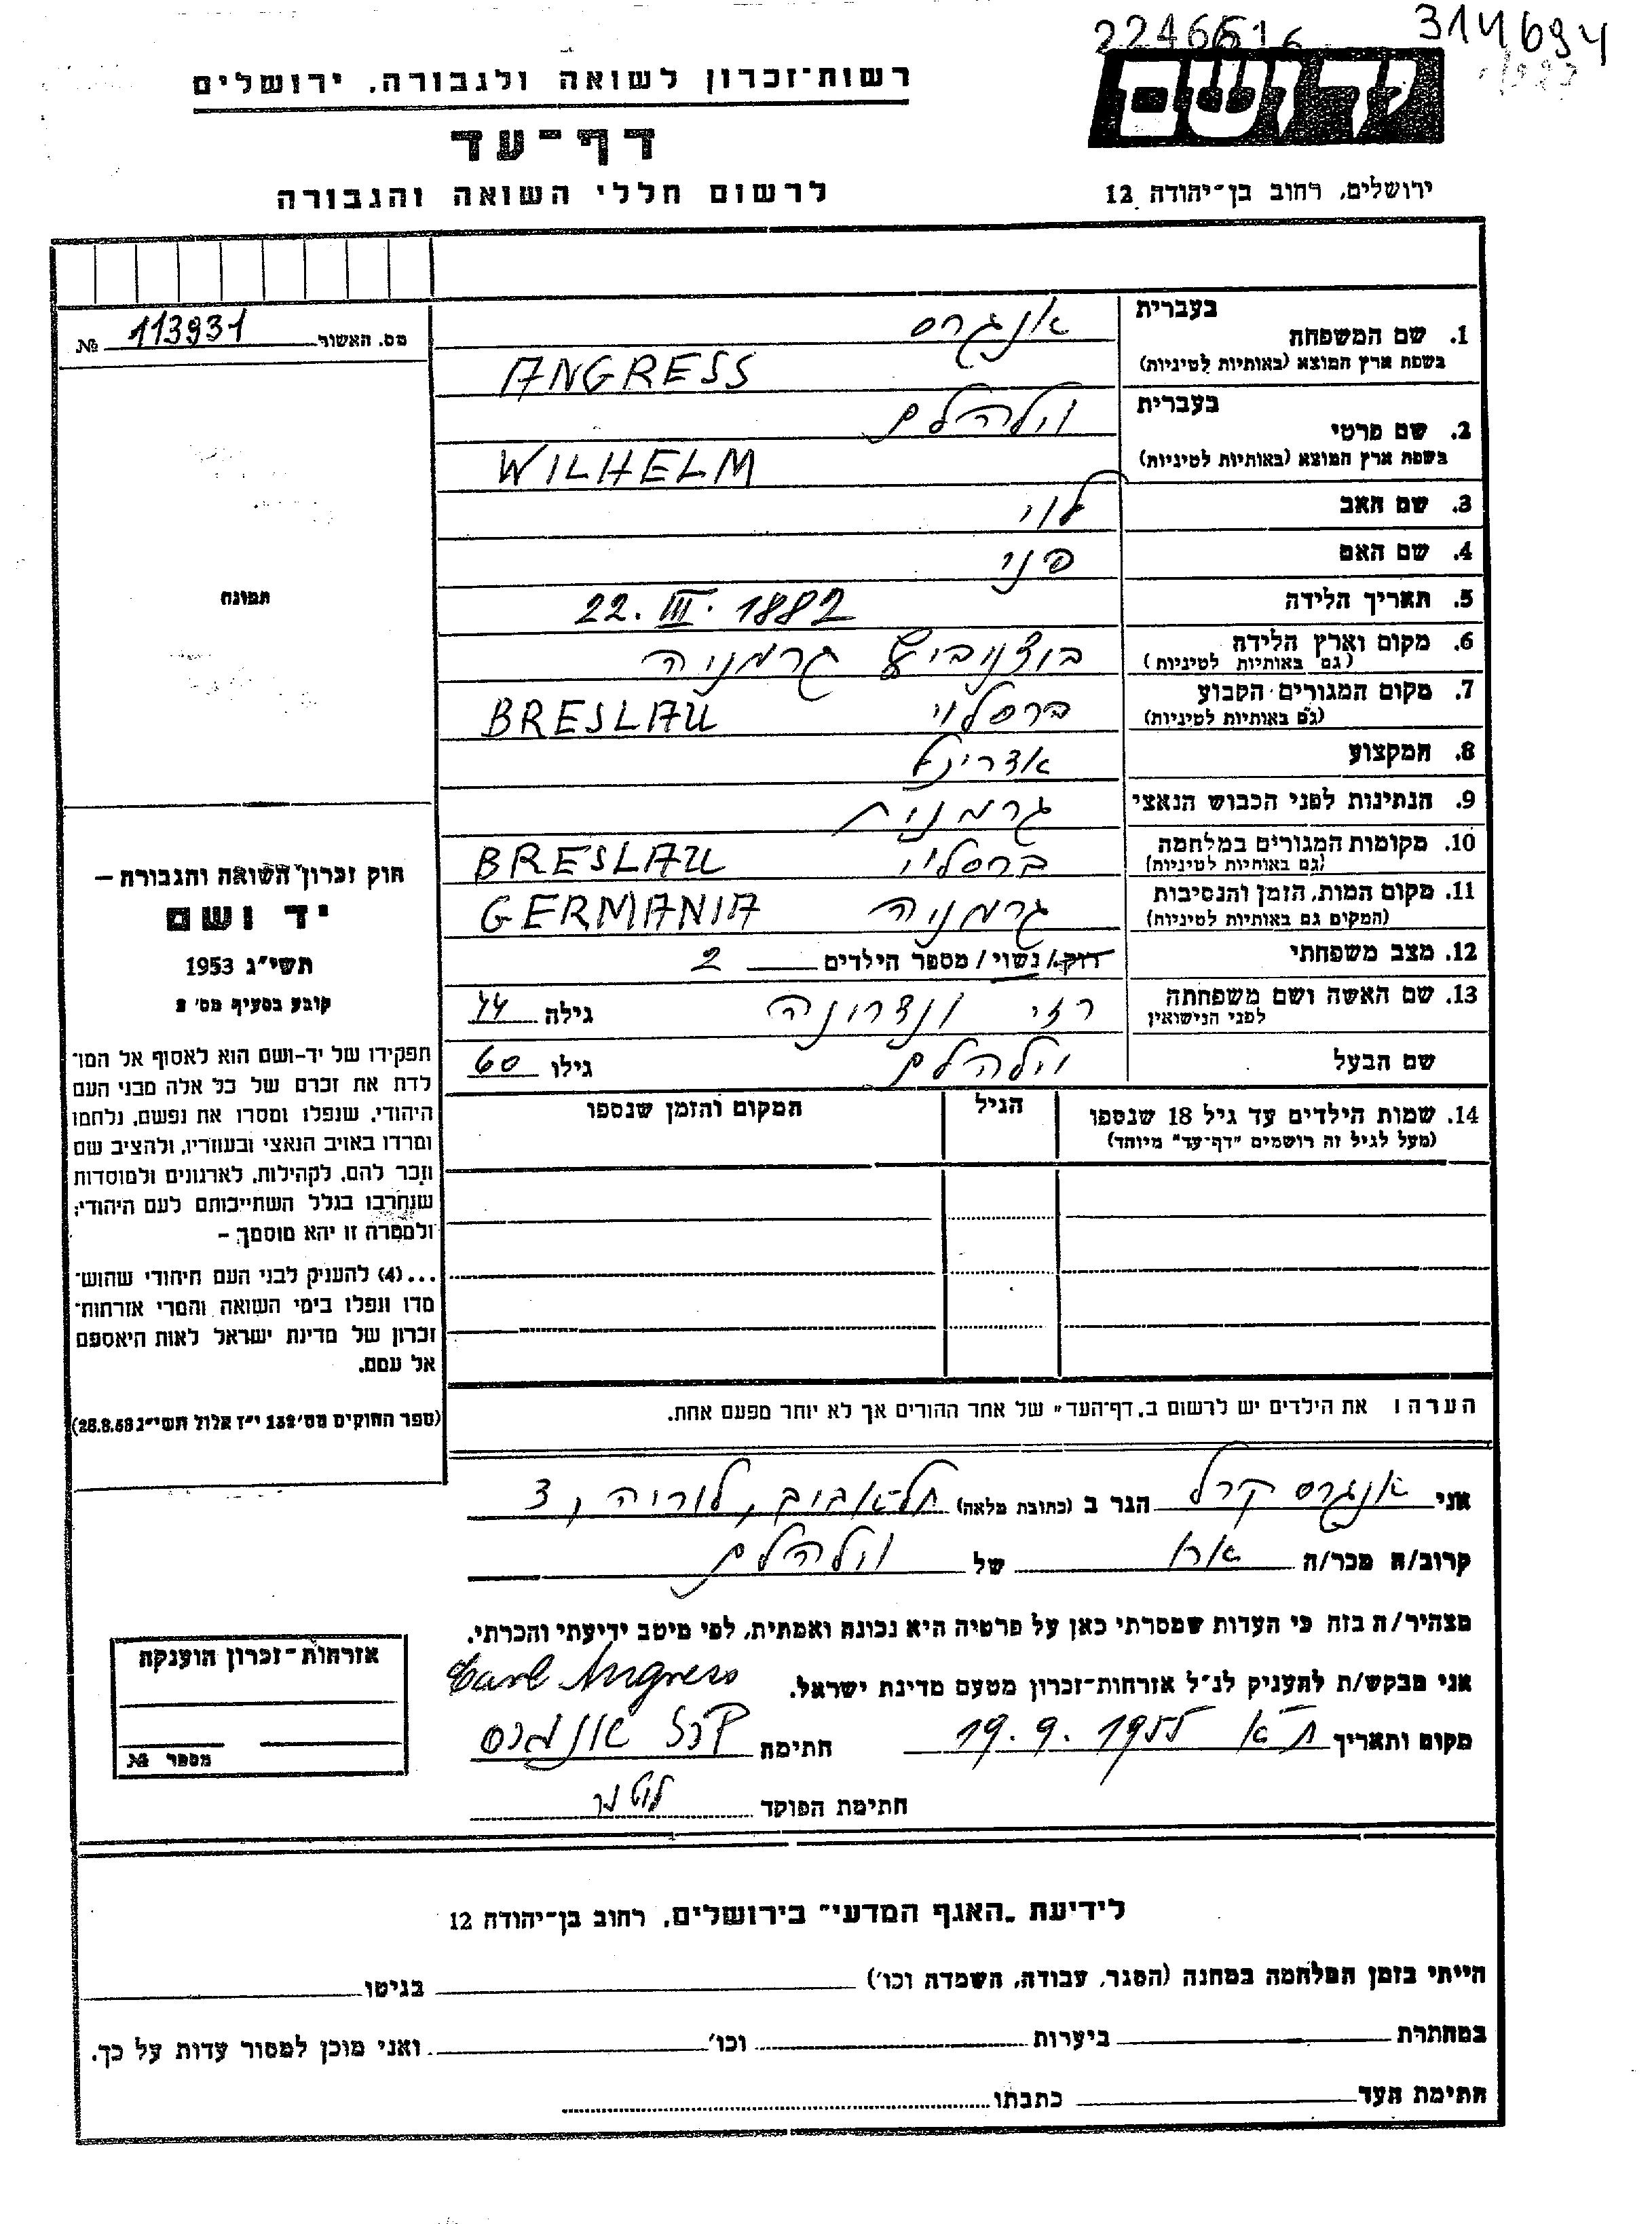 2246616 314694
יד ושם
רשות־זכרון לשואה ולגבורה, ירושלים
דף־עד
לרשום חללי השואה והגבורה
ירושלים, רחוב בן־יהודה 12
מס. האשור 113931 №
1. שם המשפחה בעברית אנגרס
בשפת ארץ המוצא (באותיות לטיניות) ANGRESS
2. שם פרטי בעברית וילהלם
בשפת ארץ המוצא (באותיות לטיניות) WILHELM
3. שם האב לוי
4. שם האם פני
5. תאריך הלידה 22. III. 1882
6. מקום וארץ הלידה גרמניה
(גם באותיות לטיניות)
7. מקום המגורים הקבוע ברסלוי BRESLAU
(גם באותיות לטיניות)
8. המקצוע
9. הנתינות לפני הכבוש הנאצי גרמנית
10. מקומות המגורים במלחמה ברסלוי BRESLAU
(גם באותיות לטיניות)
11. מקום המות, הזמן והנסיבות גרמניה GERMANIA
(המקום גם באותיות לטיניות)
12. מצב משפחתי רוק/נשוי/מספר הילדים 2
13. שם האשה ושם משפחתה רזי גילה 44
לפני הנישואין
שם הבעל וילהלם גילו 60
14. שמות הילדים עד גיל 18 שנספו הגיל המקום והזמן שנספו
(מעל לגיל זה רושמים "דף־עד" מיוחד)
תמונה
חוק זכרון השואה והגבורה –
יד ושם
תשי״ג 1953
קובע בסעיף מס׳ 2
תפקידו של יד-ושם הוא לאסוף אל המו־
לדת את זכרם של כל אלה מבני העם
היהודי, שנפלו ומסרו את נפשם, נלחמו
ומרדו באויב הנאצי ובעוזריו, ולהציב שם
וזכר להם, לקהילות, לארגונים ולמוסדות
שנחרבו בגלל השתייכותם לעם היהודי;
ולמטרה זו יהא מוסמך –
...(4) להעניק לבני העם היהודי שהוש־
מדו ונפלו בימי השואה והמרי אזרחות־
זכרון של מדינת ישראל לאות היאספם
אל עמם.
(ספר החוקים מס׳ 132 י״ז אלול תשי״ג 28.8.53)
הערה: את הילדים יש לרשום ב„דף־העד" של אחד ההורים אך לא יותר מפעם אחת.
אני אנגרס קרל הגר ב (כתובת מלאה) תל־אביב, לוריה, 3
קרוב/ה מכר/ה אח של וילהלם
מצהיר/ה בזה כי העדות שמסרתי כאן על פרטיה היא נכונה ואמתית, לפי מיטב ידיעתי והכרתי.
אני מבקש/ת להעניק לנ״ל אזרחות־זכרון מטעם מדינת ישראל. Carl Angress
מקום ותאריך ת״א 19.9.1955 חתימה קרל אנגרס
חתימת הפוקד
אזרחות־זכרון הוענקה
מספר №
לידיעת „האגף המדעי" בירושלים, רחוב בן־יהודה 12
הייתי בזמן המלחמה במחנה (הסגר, עבודה, השמדה וכו׳) בגיטו
במחתרת ביערות וכו׳ ואני מוכן למסור עדות על כך.
חתימת העד כתבתו